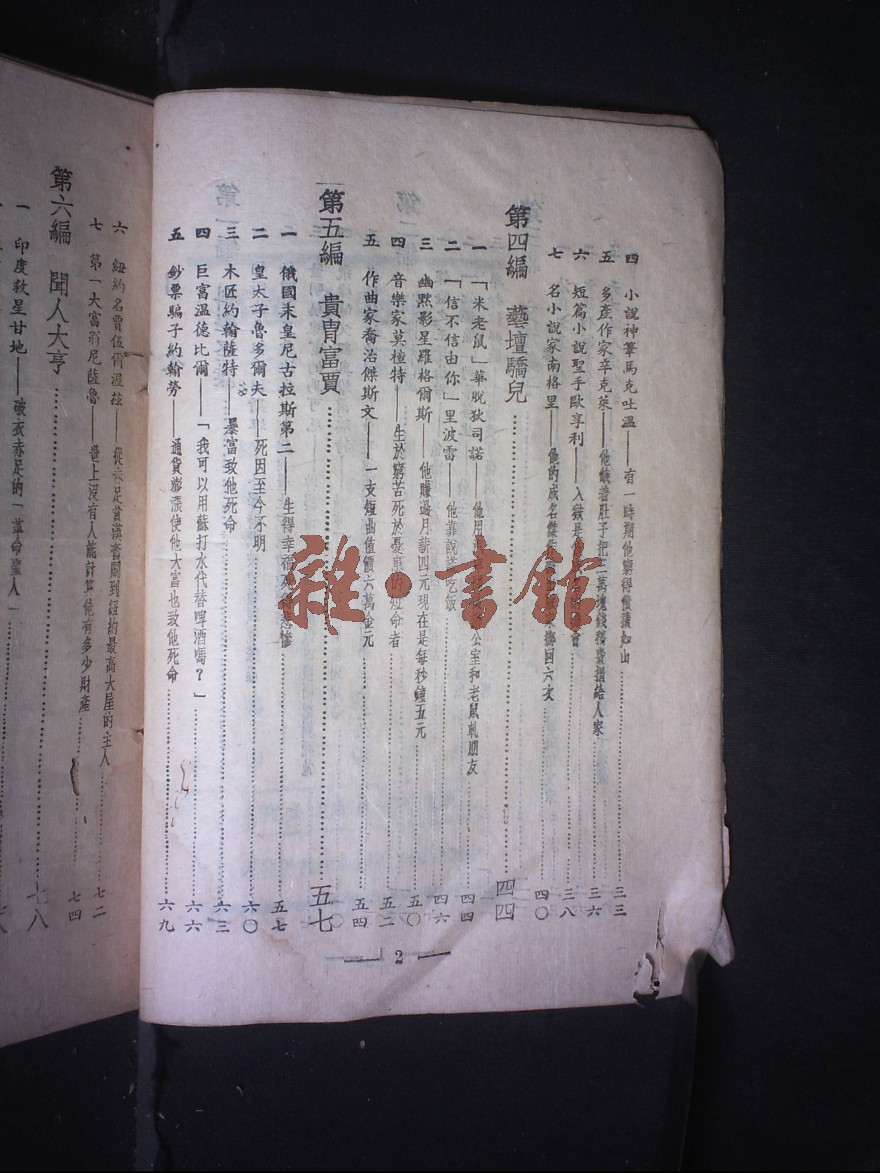 四 小說神筆馬克吐溫——有一時期他窮得債積如山……三三
五 多產作家辛克萊——他餓著肚子把三萬塊錢稿費捐給人家……三六
六 短篇小說聖手歐享利——入獄是……會……三八
七 名小說家南格里——他的成名傑……回六次……四〇
第四編 藝壇驕兒……四四
一 「米老鼠」華脫狄司諾——他用……公室和老鼠軋朋友……四四
二 「信不信由你」里波雷——他靠說謊吃飯……四六
三 幽默影星羅格爾斯——他賺過月薪四元現在是每秒鐘五元……五〇
四 音樂家莫檀特——生於窮苦死於憂……的短命者……五二
五 作曲家喬治傑斯文——一支短曲值價六萬金元……五四
第五編 貴胄富賈……五七
一 俄國末皇尼古拉斯第二——生得幸福死得悲慘……五七
二 皇太子魯多爾夫——死因至今不明……六〇
三 木匠約翰薩特——暴富致他死命……六三
四 巨富溫德比爾——「我可以用蘇打水代替啤酒嗎？」……六六
五 鈔票騙子約翰勞——通貨膨漲使他大富也致他死命……六九
2
雜·書館
六 紐約名賈伍爾波茲——從赤足貧漢奮鬭到紐約最高大屋的主人……七二
七 第一大富翁尼薩魯——世上沒有人能計算他有多少財產……七四
第六編 聞人大亨……七八
一 印度救星甘地——破衣赤足的「革命聖人」……八